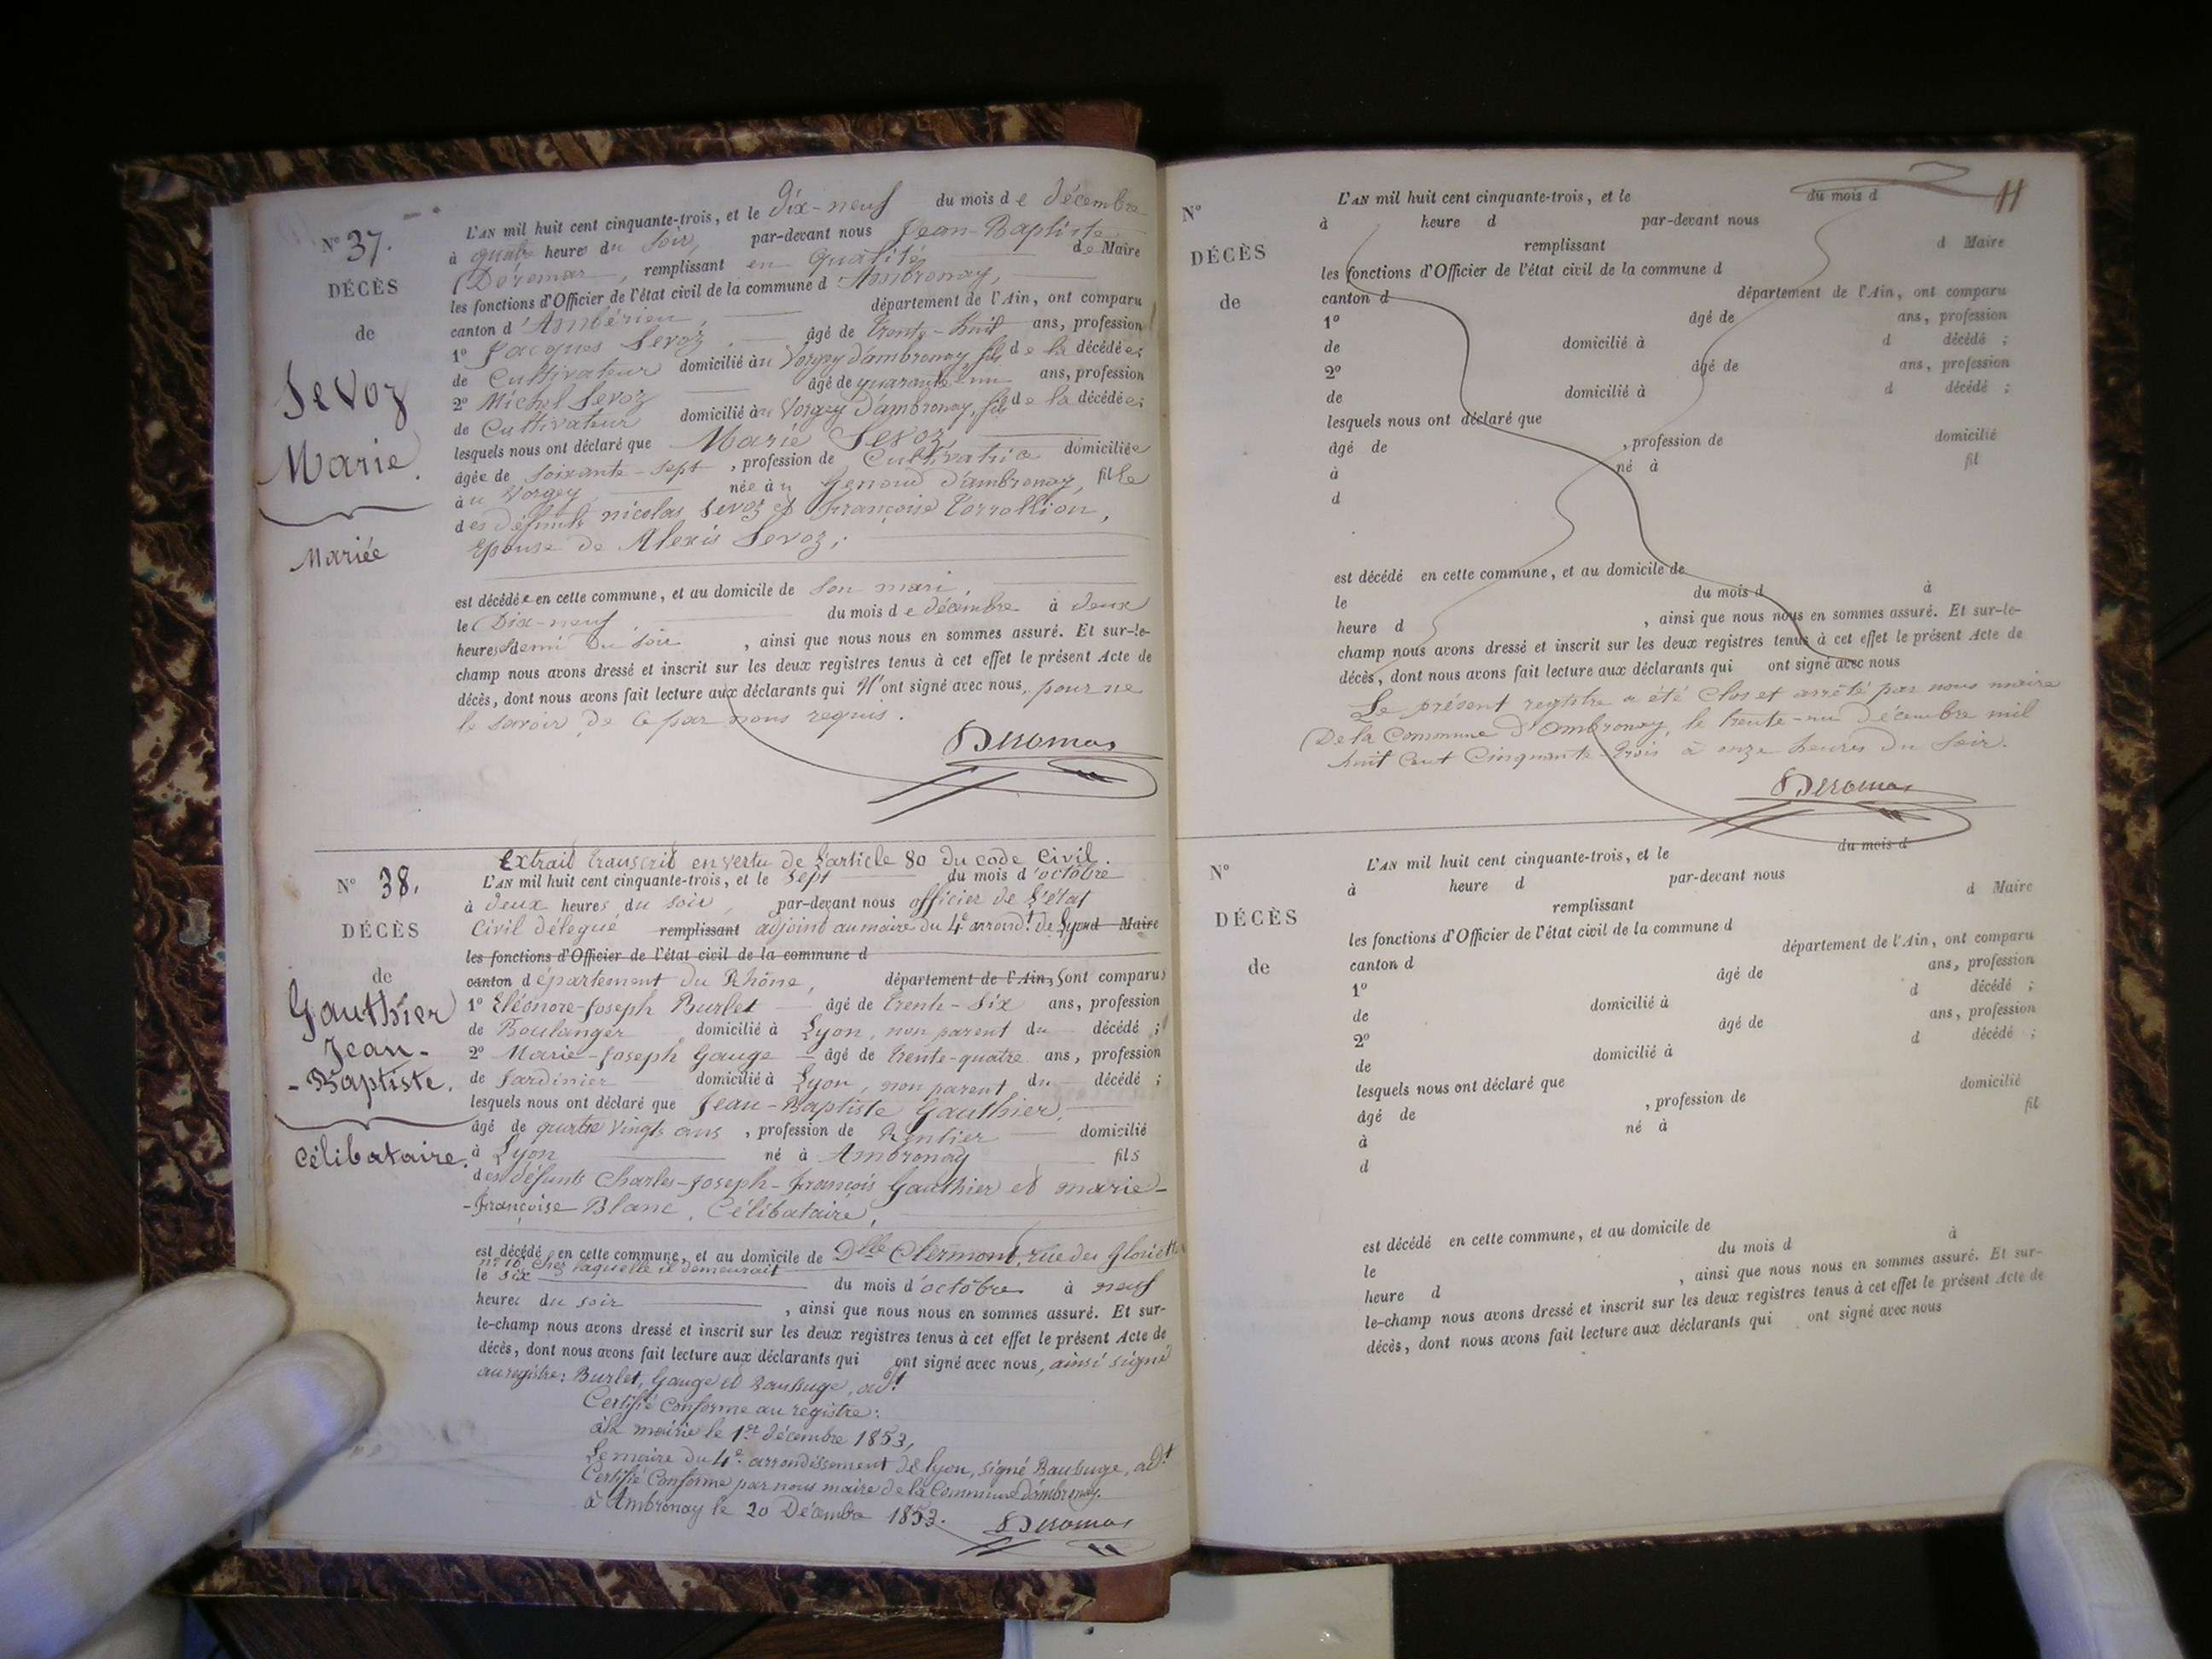 N° 37.
DÉCÈS
de
Sevoz
Marie.
Mariée
L'AN mil huit cent cinquante-trois, et le Dix-neuf du mois de décembre
à quatre heures du soir, par-devant nous Jean-Baptiste
Deromas, remplissant en qualité de Maire
les fonctions d'Officier de l'état civil de la commune d'Ambronay,
canton d'Ambérieu, département de l'Ain, ont comparu
1° Jacques Sevoz, âgé de trente-huit ans, profession
de Cultivateur domicilié au Vorgey d'ambronay, fils de la décédée;
2° Michel Sevoz âgé de quarante-un ans, profession
de Cultivateur domicilié au Vorgey d'ambronay, fils de la décédée;
lesquels nous ont déclaré que Marie Sevoz,
âgée de soixante-sept, profession de Cultivatrice domiciliée
au Vorgey née au Genoud d'ambronay, fille
des défunts nicolas Sevoz et françoise
Epouse de Alexis Sevoz;
est décédée en cette commune, et au domicile de son mari,
le Dix-neuf du mois de décembre à deux
heures demi du soir, ainsi que nous nous en sommes assuré. Et sur-le-
champ nous avons dressé et inscrit sur les deux registres tenus à cet effet le présent Acte de
décès, dont nous avons fait lecture aux déclarants qui N'ont signé avec nous, pour ne
le savoir de ce par nous requis.
Deromas
N° 38.
DÉCÈS
de
Gauthier
Jean-
-Baptiste.
Célibataire.
Extrait transcrit en vertu de l'article 80 du code Civil.
L'AN mil huit cent cinquante-trois, et le sept du mois d'octobre
à deux heures du soir, par-devant nous officier de l'état
Civil délégué remplissant adjoint au maire du 4e arrondt. de Lyon d Maire
les fonctions d'Officier de l'état civil de la commune d
canton département du Rhône, département de l'Ain, sont comparus
1° Eléonore-Joseph Burlet âgé de trente-six ans, profession
de Boulanger domicilié à Lyon, non parent du décédé;
2° Marie-Joseph Gauge âgé de trente-quatre ans, profession
de Jardinier domicilié à Lyon, non parent du décédé;
lesquels nous ont déclaré que Jean-Baptiste Gauthier,
âgé de quatre vingts ans, profession de Rentier domicilié
à Lyon né à Ambronay fils
des défunts Charles-Joseph-françois Gauthier et marie-
-françoise Blanc, Célibataire,
est décédé en cette commune, et au domicile de Dlle Clermont, rue des
n° 10, chez laquelle il demeurait
le six du mois d'octobre à neuf
heures du soir, ainsi que nous nous en sommes assuré. Et sur-
le-champ nous avons dressé et inscrit sur les deux registres tenus à cet effet le présent Acte de
décès, dont nous avons fait lecture aux déclarants qui ont signé avec nous, ainsi signé
au registre: Burlet, Gauge et adjt
Certifié Conforme au registre:
à la mairie le 1er décembre 1853,
Le maire du 4e arrondissement de Lyon, signé adjt
Certifié Conforme par nous maire de la Commune d'ambronay.
à Ambronay le 20 Décembre 1853.
Deromas
11
N°
DÉCÈS
de
L'AN mil huit cent cinquante-trois, et le du mois d
à heure d par-devant nous
remplissant d Maire
les fonctions d'Officier de l'état civil de la commune d
canton d département de l'Ain, ont comparu
1° âgé de ans, profession
de domicilié à d décédé ;
2° âgé de ans, profession
de domicilié à d décédé ;
lesquels nous ont déclaré que
âgé de , profession de domicilié
à né à fil
d
est décédé en cette commune, et au domicile de
le du mois d à
heure d , ainsi que nous nous en sommes assuré. Et sur-le-
champ nous avons dressé et inscrit sur les deux registres tenus à cet effet le présent Acte de
décès, dont nous avons fait lecture aux déclarants qui ont signé avec nous
Le présent registre a été Clos et arrêté par nous maire
De la Commune d'ambronay, le trente-un Décembre mil
huit Cent Cinquante-trois à onze heures du Soir.
Deromas
N°
DÉCÈS
de
L'AN mil huit cent cinquante-trois, et le du mois d
à heure d par-devant nous
remplissant d Maire
les fonctions d'Officier de l'état civil de la commune d
canton d département de l'Ain, ont comparu
1° âgé de ans, profession
de domicilié à d décédé ;
2° âgé de ans, profession
de domicilié à d décédé ;
lesquels nous ont déclaré que
âgé de , profession de domicilié
à né à fil
d
est décédé en cette commune, et au domicile de
le du mois d à
heure d , ainsi que nous nous en sommes assuré. Et sur-
le-champ nous avons dressé et inscrit sur les deux registres tenus à cet effet le présent Acte de
décès, dont nous avons fait lecture aux déclarants qui ont signé avec nous